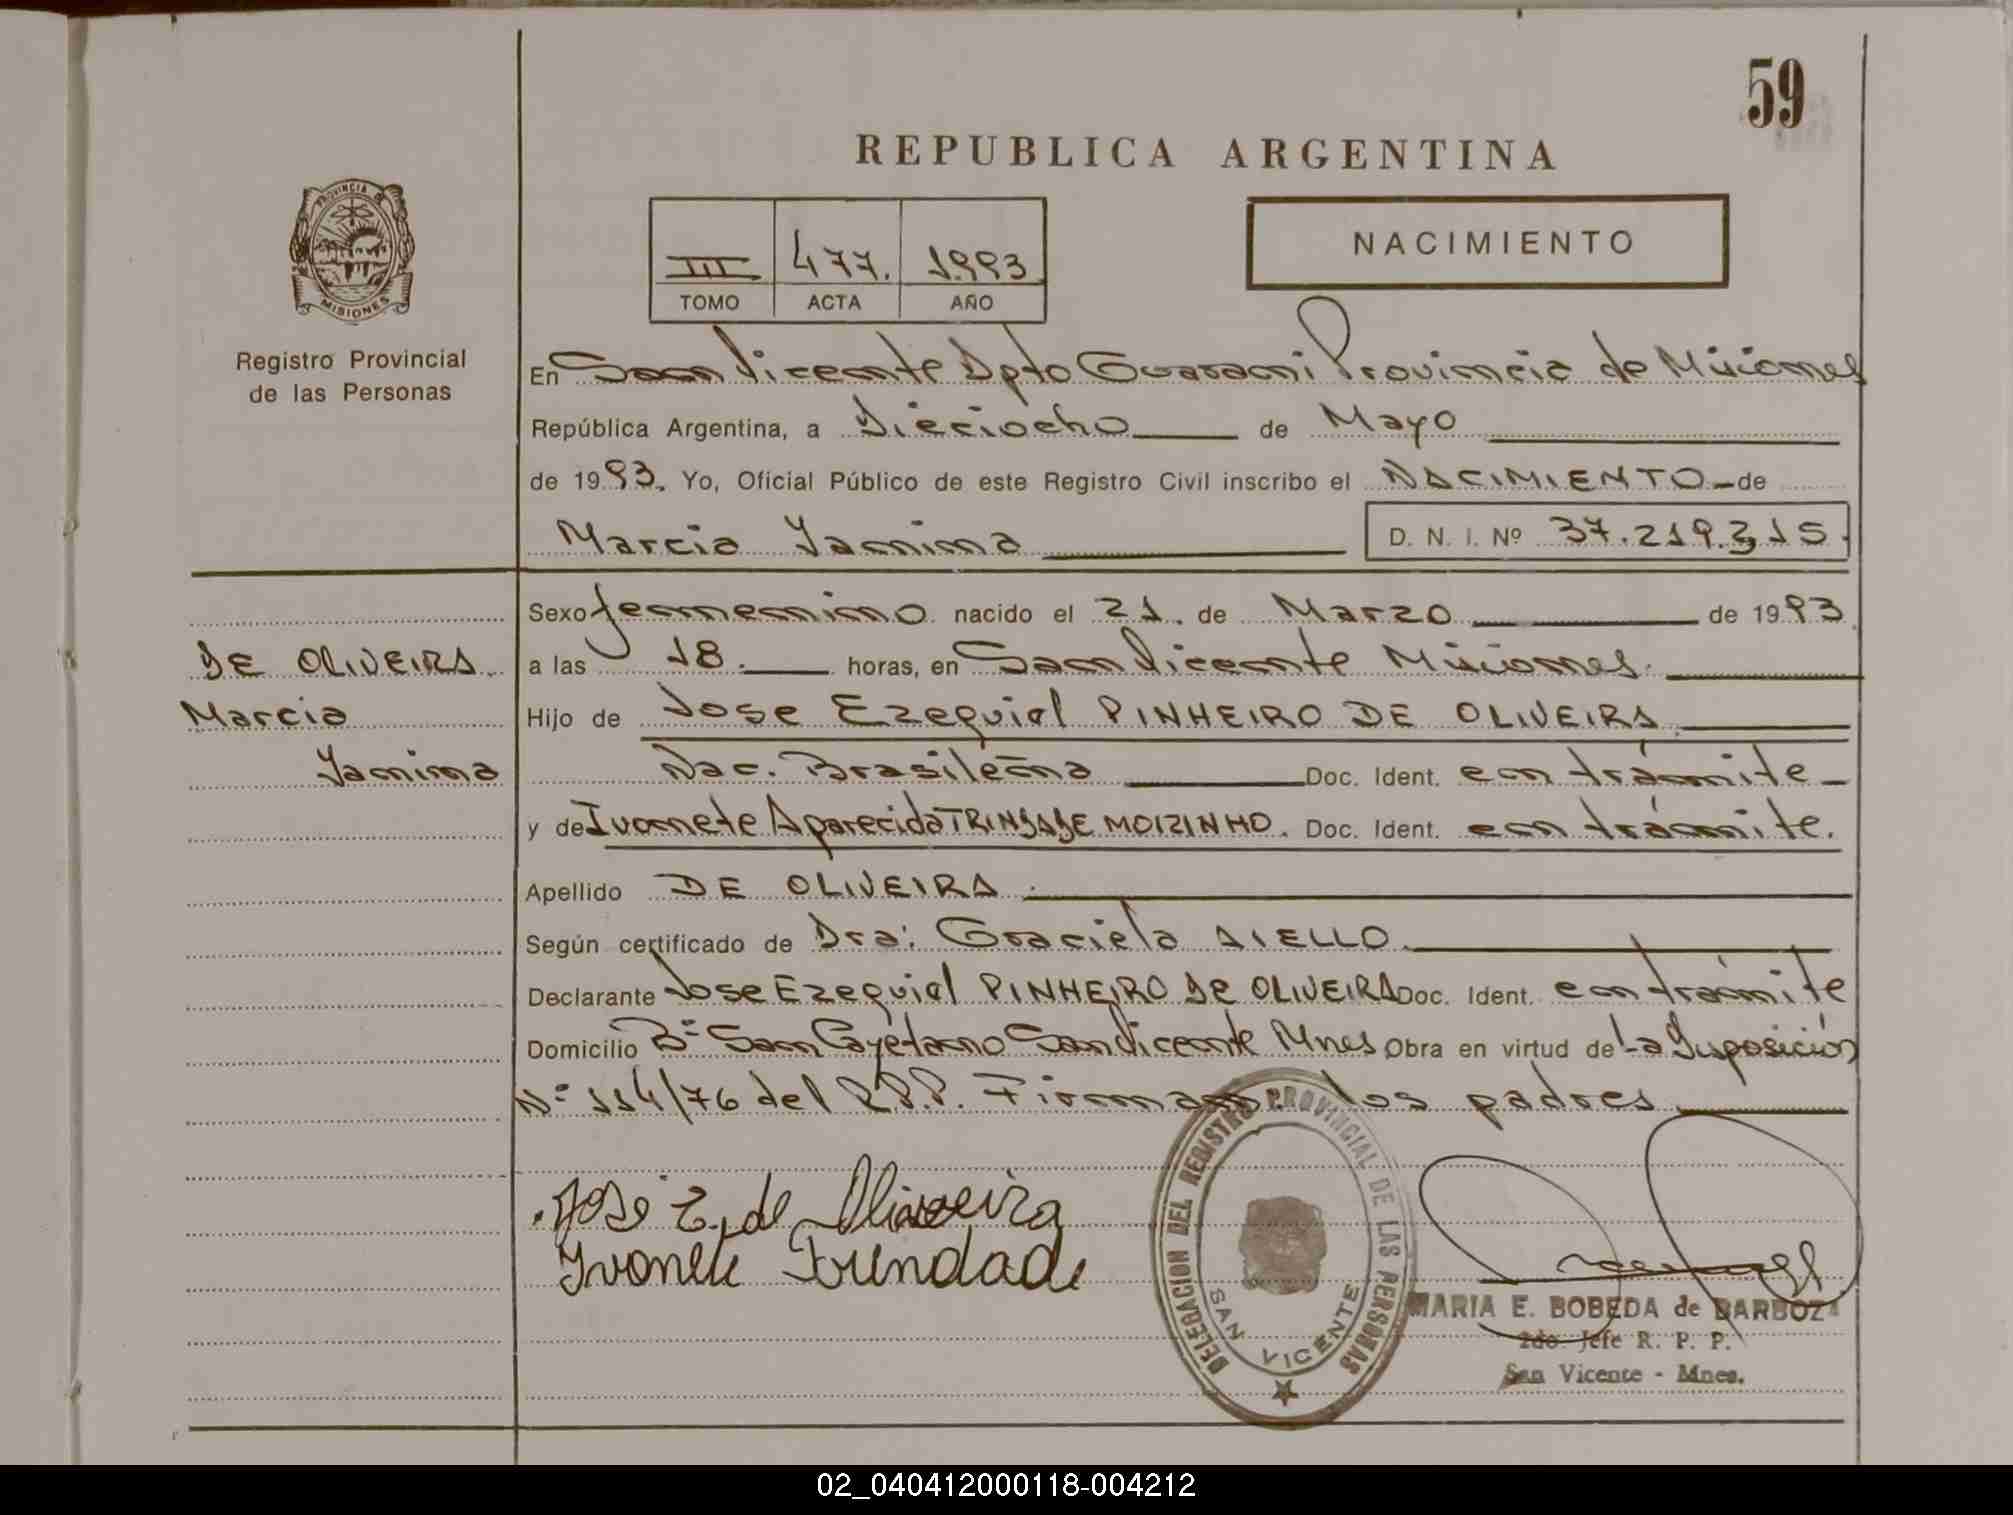 59
REPUBLICA ARGENTINA
PROVINCIA DE
MISIONES
Registro Provincial
de las Personas
III 477. 1993
TOMO ACTA AÑO
NACIMIENTO
En San Vicente Dpto Guarani Provincia de Misiones
República Argentina, a Dieciocho de Mayo
de 1993. Yo, Oficial Público de este Registro Civil inscribo el NACIMIENTO de
Marcia Yanina D. N. I. Nº 37.219.315.
Sexo femenino nacido el 21. de Marzo de 1993
DE OLIVEIRA
Marcia
Yanina
a las 18. horas, en San Vicente Misiones.
Hijo de Jose Ezequiel PINHEIRO DE OLIVEIRA
Nac. Brasileña Doc. Ident. en trámite
y de Ivonete Aparecida TRINDADE MOIZINHO. Doc. Ident. en trámite.
Apellido DE OLIVEIRA.
Según certificado de Dra: Graciela AIELLO.
Declarante Jose Ezequiel PINHEIRO DE OLIVEIRA Doc. Ident. en trámite
Domicilio Bº San Cayetano San Vicente Mnes Obra en virtud de La Disposición
Nº 114/76 del R.P.P. Firman: los padres
José E. de Oliveira
Ivonete Trindade
DELEGACION DEL REGISTRO PROVINCIAL DE LAS PERSONAS
SAN VICENTE
MARIA E. BOBEDA de BARBOZA
2do. Jefe R. P. P.
San Vicente - Mnes.
02_040412000118-004212